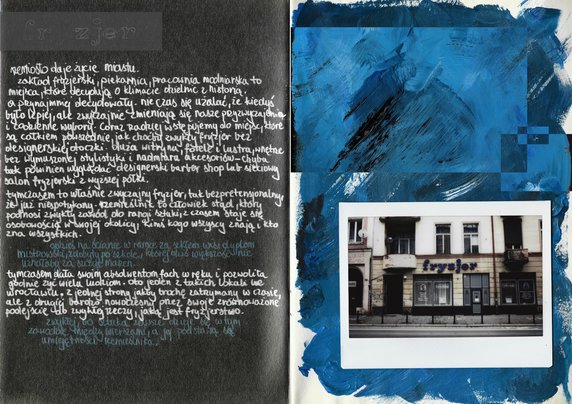 fryzjer
rzemiosło daje życie miastu.
zakład fryzjerski, piekarnia, pracownia modniarska to
miejsca, które decydują o klimacie dzielnic z historią.
a przynajmniej decydowały. nie czas się użalać, że kiedyś
było lepiej, ale zwyczajnie zmieniają się nasze przyzwyczajenia
i codzienne wybory. coraz rzadziej wstępujemy do miejsc, które
są całkiem powszednie, jak chociażby zwykły fryzjer bez
designerskiej otoczki. duża witryna, fotele i lustra, wnętrze
bez wymuszonej stylistyki i nadmiaru akcesoriów - chyba
tak powinien wyglądać designerski barber shop lub sieciowy
salon fryzjerski z wyższej półki.
tymczasem to właśnie zwyczajny fryzjer, tak bezpretensjonalny
że już niespotykany. rzemieślnik to człowiek stąd, który
podnosi zwykły zawód do rangi sztuki, z czasem staje się
osobowością w twojej okolicy, kimś kogo wszyscy znają i kto
zna wszystkich.
gdzieś na ścianie w ramce za szkłem wisi dyplom
mistrzowski, zdobyty po szkole, której dziś większość nie
tymczasem dała swoim absolwentom fach w ręku i pozwoliła
godnie żyć wielu ludziom. oto jeden z takich lokali we
wrocławiu. z jednej strony jakby trochę zatrzymany w czasie,
ale z drugiej bardzo nowoczesny przez swoje zrównoważone
podejście do zwykłej rzeczy, jaką jest fryzjerstwo.
sztuka dzieje się w tym
zawodzie między wierszami, a jej podstawą są
umiejętności rzemieślnika.
fryzjer